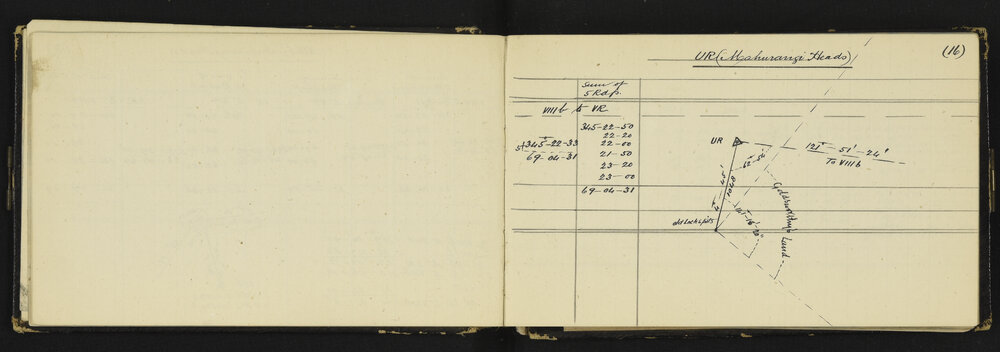 (16)
UR (Mahurangi Heads)
Sum of
5 Rdgs.
VIIIb to UR
345-22-50
22-20
345-22-33
22-00
69-04-31
21-50
23-20
23-00
69-04-31
UR
121°-51'-24"
To VIIIb
62°-54'
1040
Goldsworthy's Land
old Lockspits